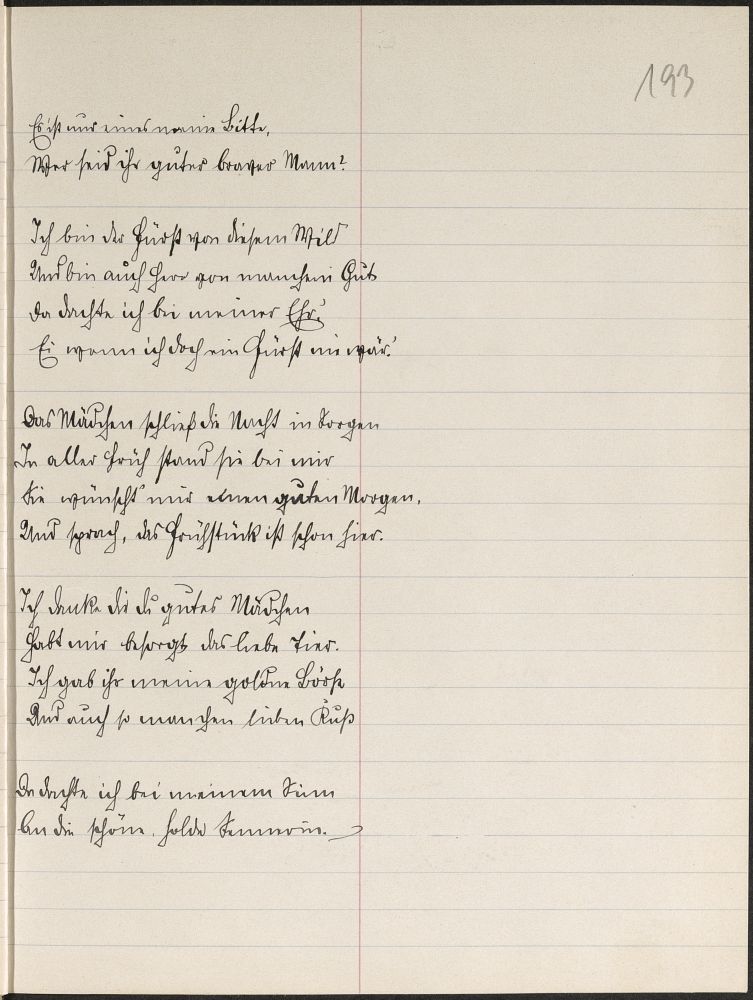 193
Es ist nur eines meine Bitte,
Wer seid ihr guter braver Mann?
Ich bin der Fürst von diesem Wild
Und bin auch Herr von manchem Gut
Da dachte ich bei meiner Ehr,
Ei wenn ich doch ein Fürst nie wär!
Das Mädchen schlief die Nacht in Sorgen
In aller Früh stand sie bei mir
Sie wünscht mir einen guten Morgen,
Und sprach, das Frühstück ist schon hier.
Ich danke dir du gutes Mädchen
Habt mir besorgt das liebe Tier.
Ich gab ihr meine goldne Börse
Und auch so manchen lieben Kuß
Da dachte ich bei meinem Sinn
An die schöne, holde Sennerin.